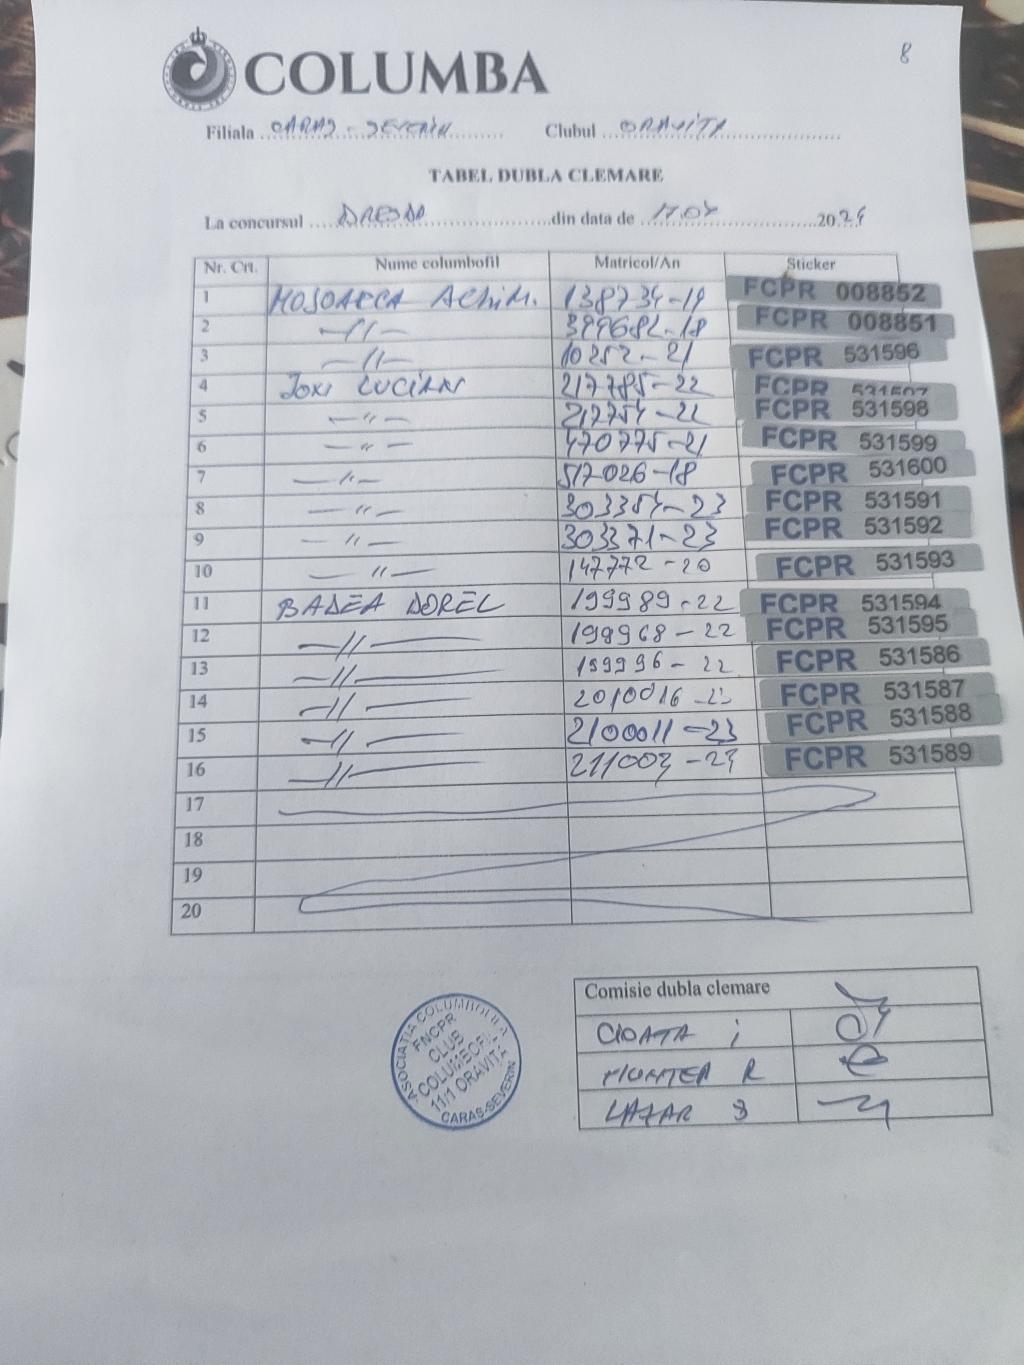 8
COLUMBA
Filiala CARAS - SEVERIN Clubul ORAVITA
TABEL DUBLA CLEMARE
La concursul DRESDA din data de 17.07 2024
Nr. Crt. Nume columbofil Matricol/An Sticker
1 MOSOARCA ACHIM. 138734-19 FCPR 008852
2 —//— 399682-18 FCPR 008851
3 —//— 10252-21 FCPR 531596
4 LUCIAN 217785-22 FCPR 531597
5 —//— 217754-22 FCPR 531598
6 —//— 470775-21 FCPR 531599
7 —//— 517026-18 FCPR 531600
8 —//— 303354-23 FCPR 531591
9 —//— 303371-23 FCPR 531592
10 —//— 147772-20 FCPR 531593
11 BADEA DOREL 199989-22 FCPR 531594
12 —//— 199968-22 FCPR 531595
13 —//— 199996-22 FCPR 531586
14 —//— 2010016-23 FCPR 531587
15 —//— 2100011-23 FCPR 531588
16 —//— 211003-23 FCPR 531589
17
18
19
20
Comisie dubla clemare
CIOATA i
MUNTEA R
LAZAR S
ASOCIATIA COLUMBOFILA
FNCPR
CLUB
COLUMBOFIL
11/1 ORAVITA
CARAS-SEVERIN